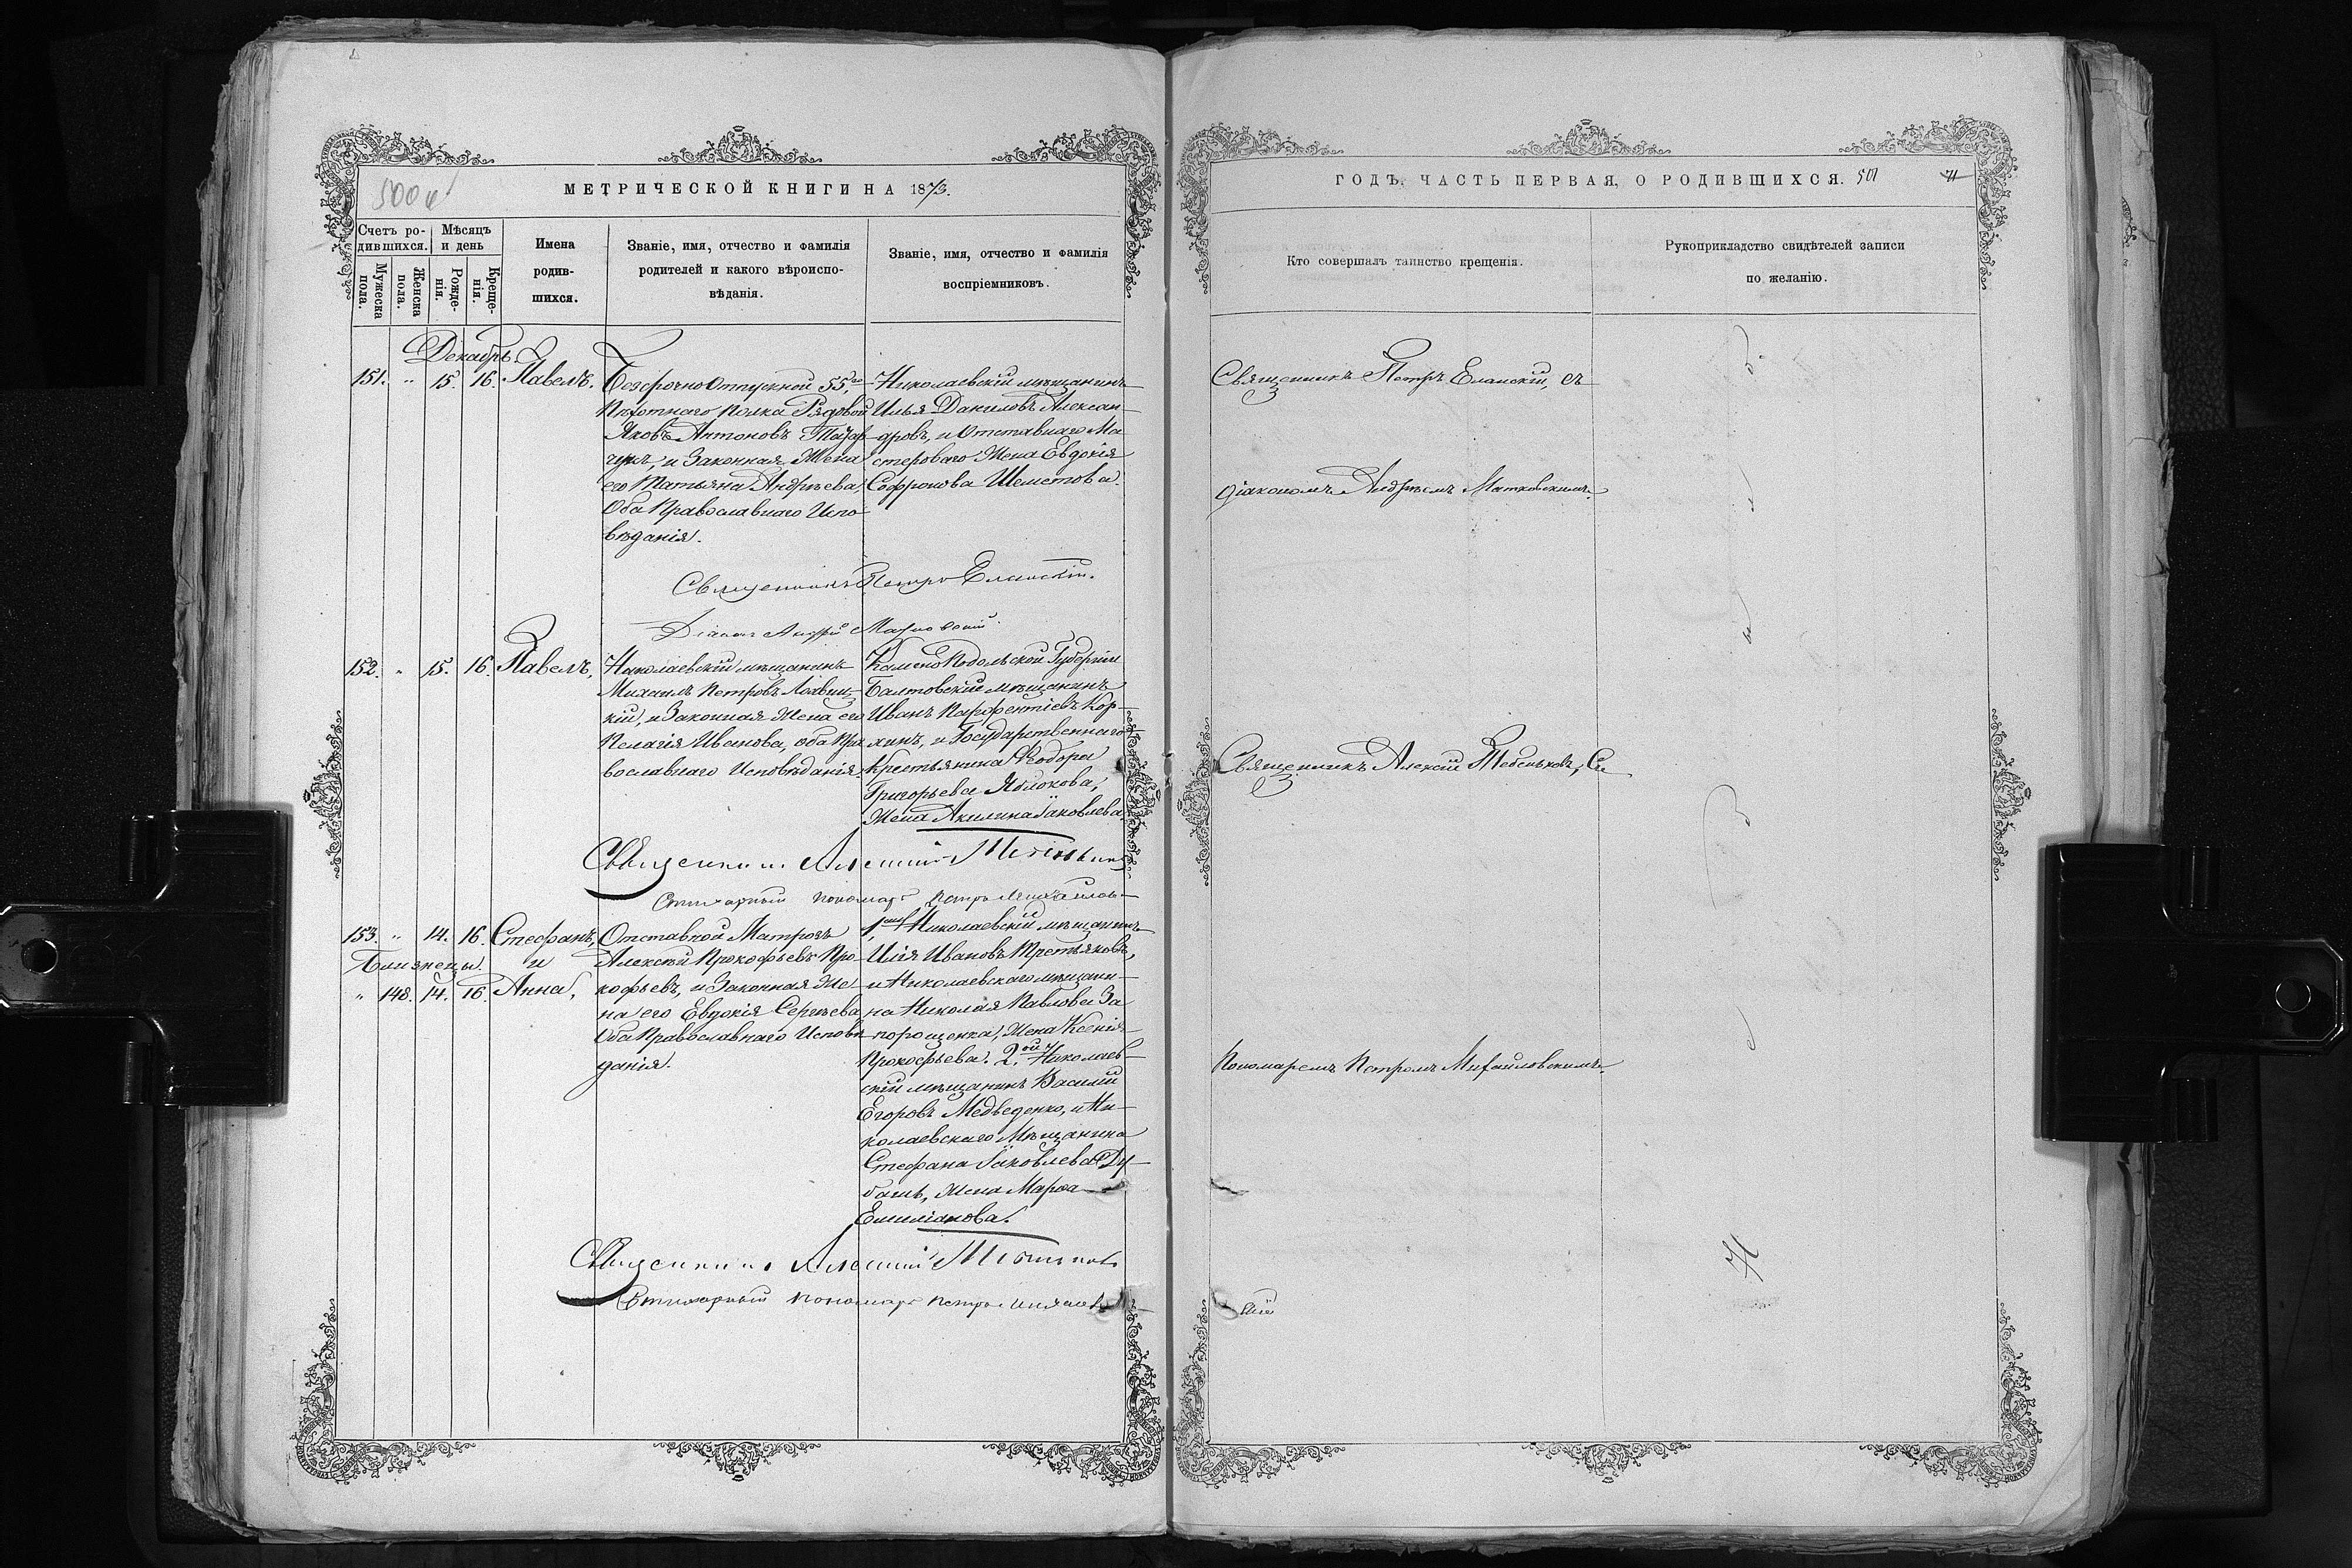 МЕТРИЧЕСКОЙ КНИГИ НА 1873.
Счетъ ро-
дившихся.
Мѣсяцъ
и день
Имена
родив-
шихся.
Званіе, имя, отчество и фамилія
родителей и какого вѣроиспо-
вѣданія.
Званіе, имя, отчество и фамилія
воспріемниковъ.
Мужеска
пола.
Женска
пола.
Рожде-
нія.
Креще-
нія.
Декабрь.
151. " 15. 16. Павелъ.
Безсрочно Отпускной 55го
Пѣхотнаго Полка Рядовой
Яковъ Антоновъ
и Законная Жена
его Татьяна Андреева,
Оба Православнаго Испо-
вѣданія.
Николаевскій мѣщанинъ
Илья Даниловъ Алексан-
дровъ, и Отставнаго Ма-
стероваго Жена Евдокія
Софронова Шеметова.
Священникъ Петръ Еланскій.
Діаконъ Андрей
152. " 15. 16. Павелъ,
Николаевскій мѣщанинъ
Михаилъ Петровъ Лохвиц-
кій, и Законная Жена его
Пелагія Иванова, оба Пра-
вославнаго Исповѣданія.
Камено Подольской Губерніи
Балтовскій мѣщанинъ
Иванъ Парфентіевъ Кор-
хинъ, и Государственнаго
Крестьянина Ѳедора
Григорьева Яблокова,
Жена Акилина Іаковлева.
Священникъ Алексій
Стихарный пономарь Петръ Михайлов-
153. " 14. 16. Стефанъ,
Близнецы. и
" 148. 14. 16. Анна,
Отставной Матрозъ
Алексѣй Прокофьевъ Про-
кофьевъ, и Законная Же-
на его Евдокія Сергѣева
Оба Православнаго Исповѣ-
данія.
1. Николаевскій мѣщанинъ
Илія Ивановъ Третьяковъ,
и Николаевскаго мѣщани-
на Николая Павлова За-
порощенка, Жена Ксенія
Прокофьева. 2ой Николаев-
скій мѣщанинъ Василій
Егоровъ Медведенко, и Ни-
колаевскаго Мѣщанина
Стефана Іаковлева Ду-
башъ, Жена Марѳа
Емиліанова.
Священникъ Алексій
Стихарный пономарь Петръ
ГОДЪ, ЧАСТЬ ПЕРВАЯ, О РОДИВШИХСЯ. 501 71
Кто совершалъ таинство крещенія.
Рукоприкладство свидѣтелей записи
по желанію.
Священникъ Петръ Еланскій, съ
Діакономъ Андреемъ Матковскимъ.
Священникъ Алексій Тебеньковъ, Съ
Пономаремъ Петромъ Михайловскимъ.